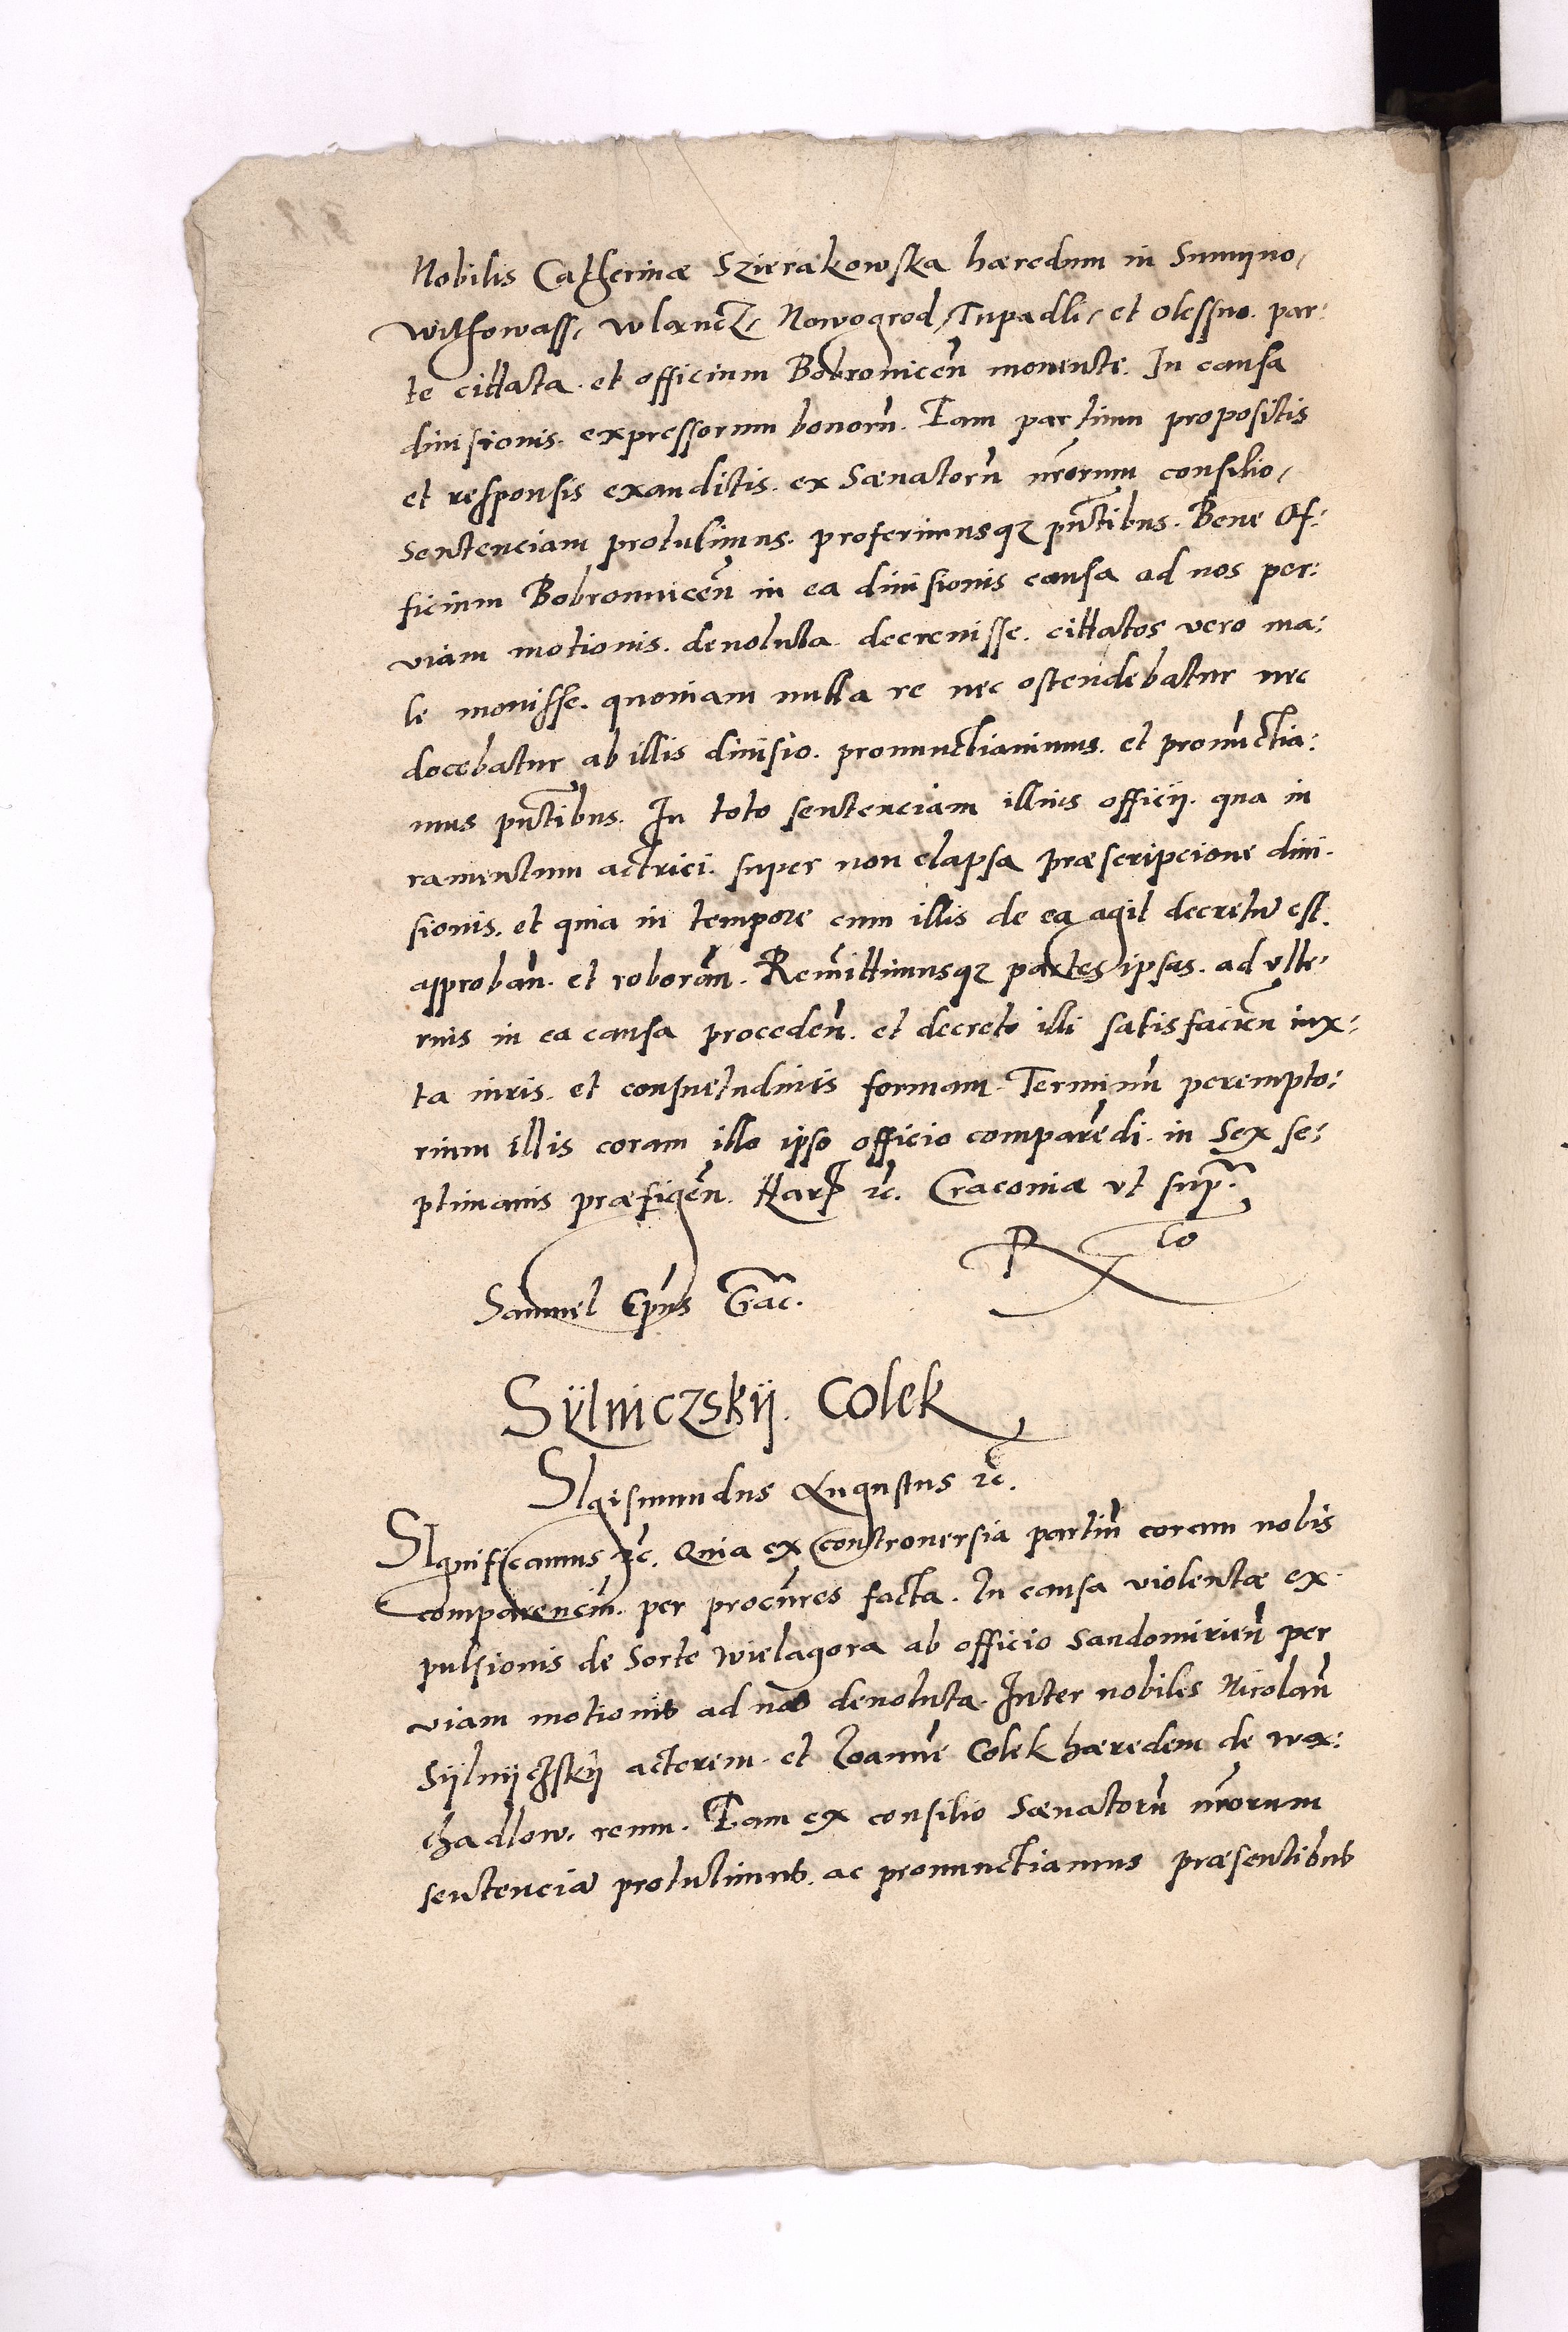 Nobilis Catherinæ Szierakowska hæredum in Sumijno,
Withowass, wlencz, Nowogrod, Tupadli, et Olessno. par:
te cittata. et officium Bobrouicen̄ mouente. In causa
diuisionis. expressorum bonorū. Eam partium propositis
et responsis exauditis. ex Sænatorū nr̄orum consilio,
Sentenciam protulimus. proferimusqȝ pn̄tibus. Bene Of:
ficium Bobrounicen̄ in ea diuisionis causa ad nos per:
viam motionis. deuoluta decreuisse. cittatos vero ma:
le mouisse. quoniam nulla re nec ostendebatur nec
docebatur ab illis diuisio. pronunctiauimus. et pronūctia:
mus pn̄tibus. In toto sentenciam illius officij. qua iu
ramentum actrici. super non elapsa præscripcione diui.
sionis. et quia in tempore cum illis de ea agit decretū est.
approban̄. et roboran̄. Remittimusqȝ partes ipsas. ad vlte:
rius in ea causa proceden̄. et decreto illi satisfacien̄ iux:
ta iuris. et consuetudinis formam. Terminū perempto:
rium illis coram illo ipso officio comparēdi. in Sex se:
ptimanis præfigen̄. Harȷ ꝛc. Cracouiæ vt supra.
Rto
Samuel Ep̄us Crac.
Sÿlniczskij. Colek
SIgismundus Augustus ꝛc.
SIgnificamus ꝛc. Quia ex controuersia partiū coram nobis
comparenciū. per procūres facta. In causa violentæ ex
pulsionis de Sorte wielagora ab officio Sandomirien̄ per
viam motionis ad nos deuoluta. Inter nobiles Nicolaū
Sÿlnijczskij actorem. et Joannē Colek hæredem de wo:
chadlow. reum. Eam ex consilio Sænatorū nr̄orum
sentenciā protulimus. ac pronunctiamus præsentibus